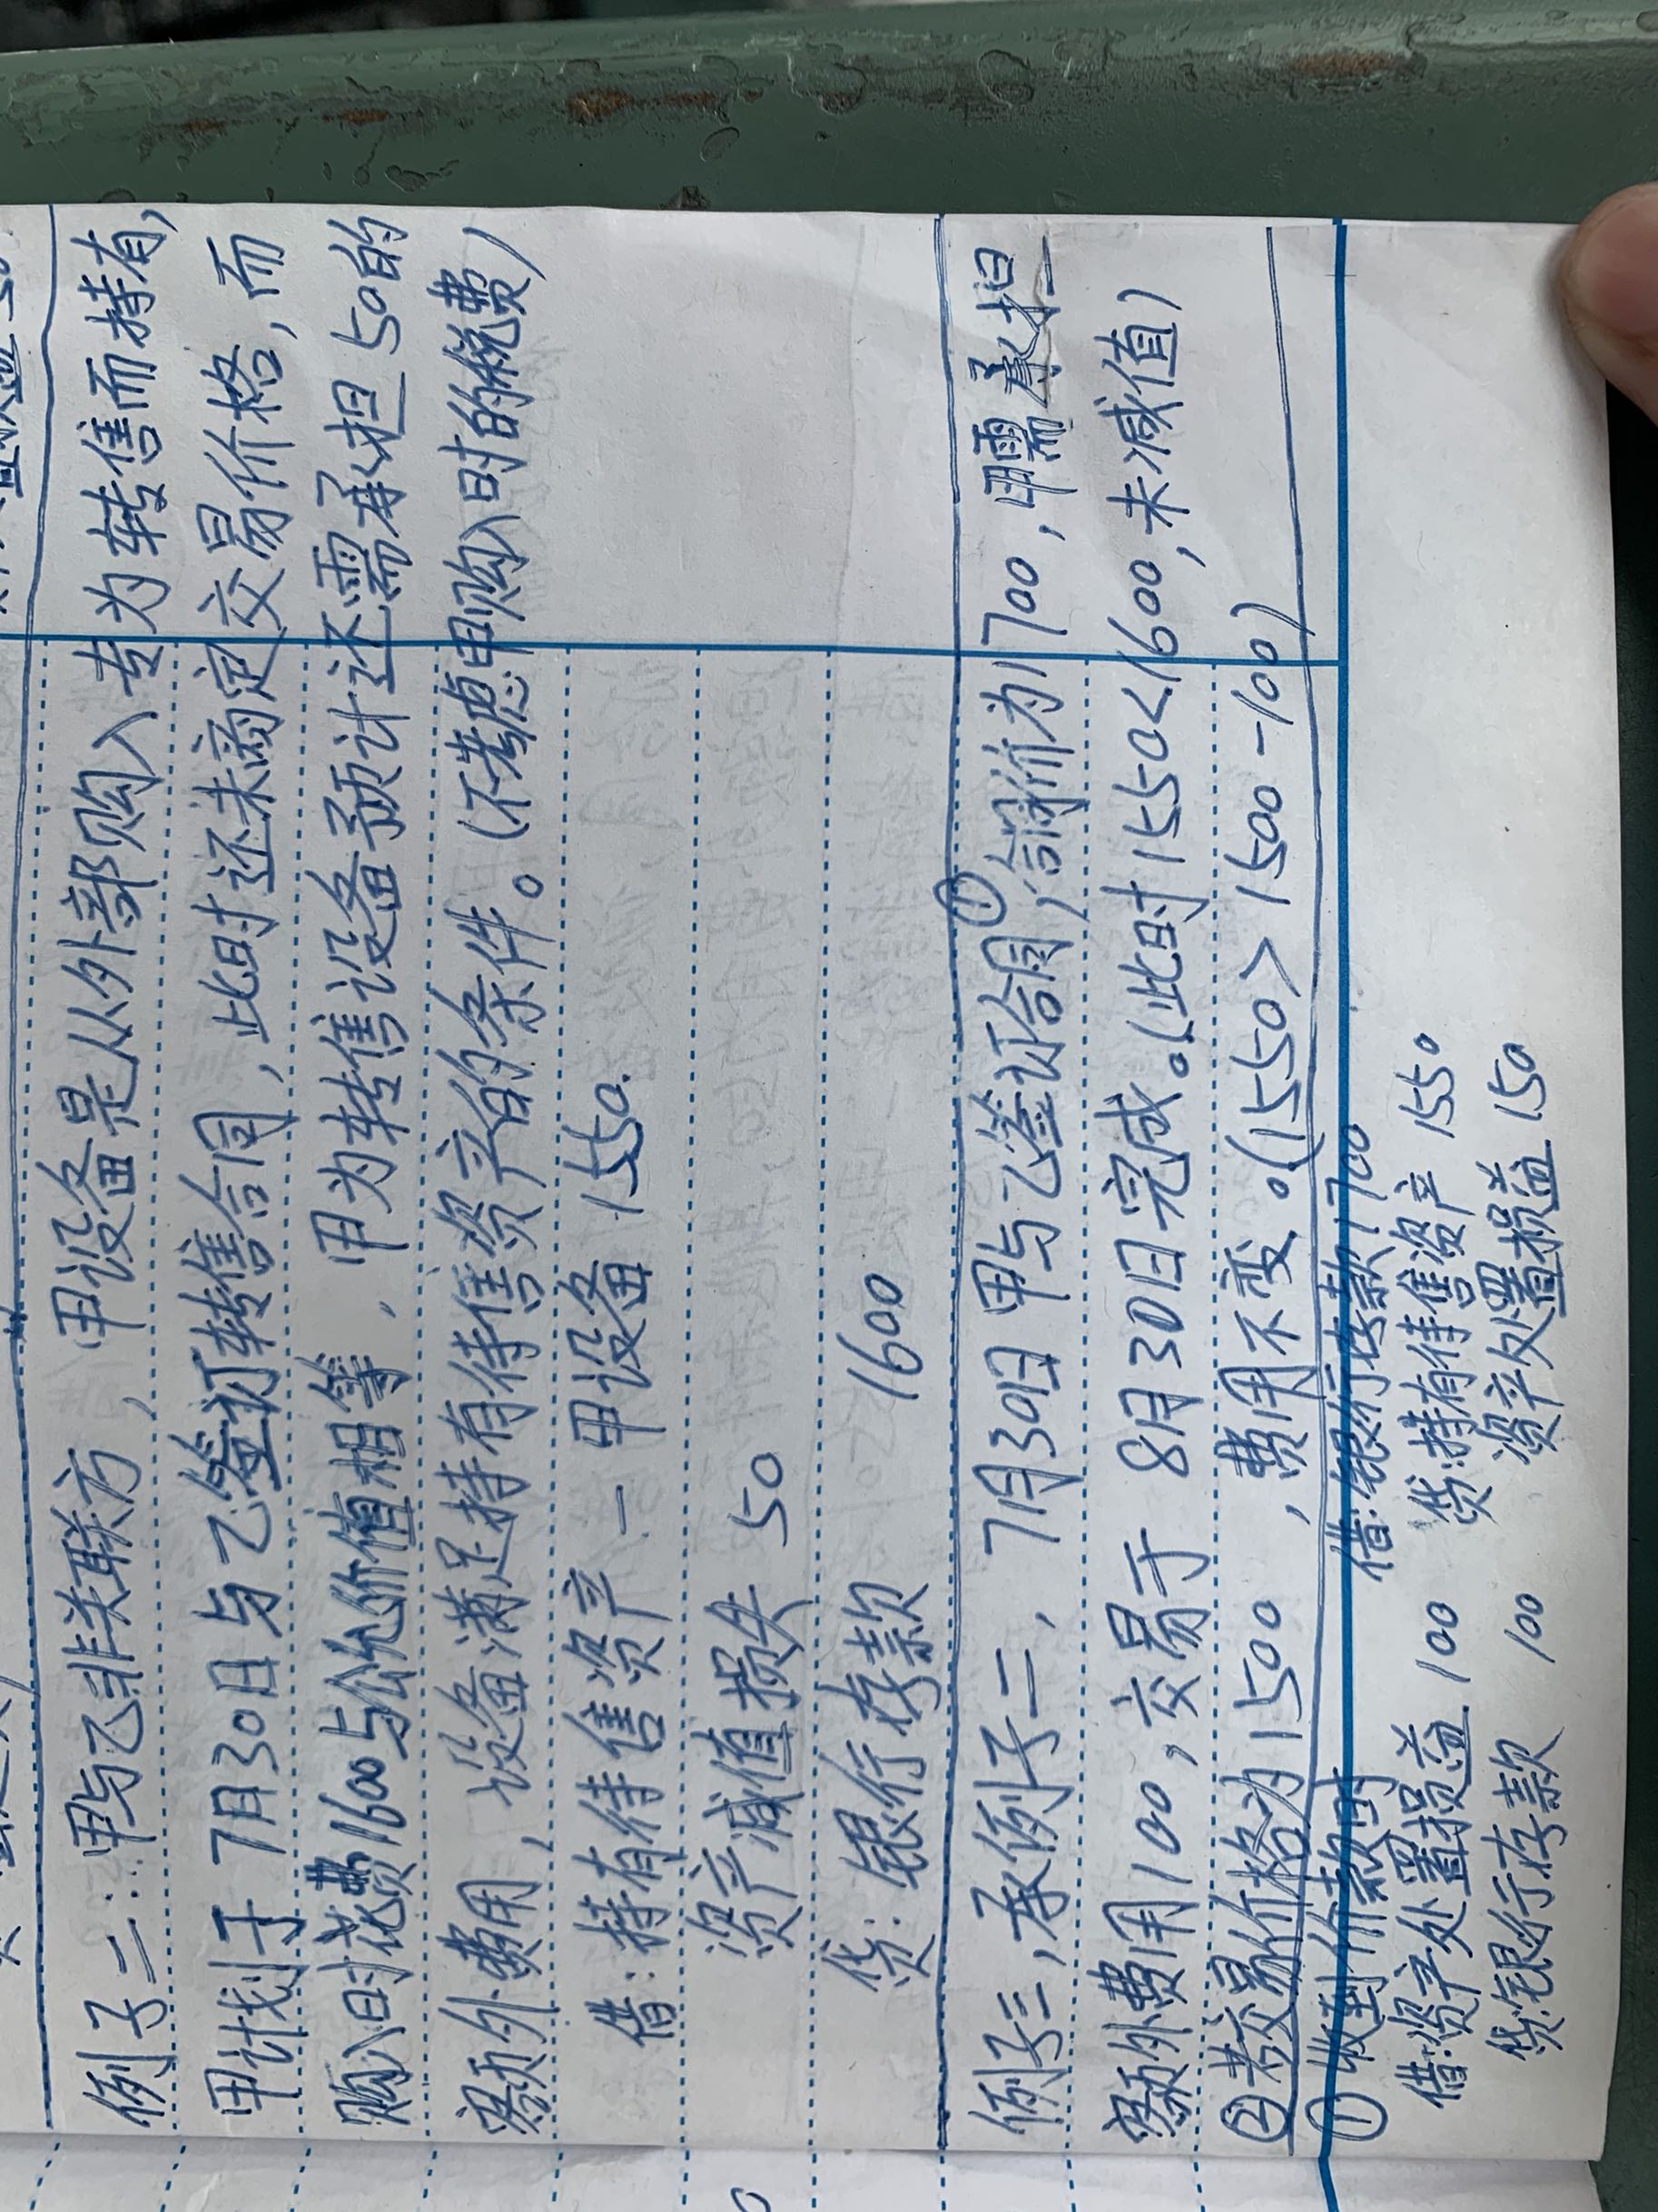 例子二：甲与乙非关联方，甲设备是从外部购入专为转售而持有，
甲计划于7月30日与乙签订转售合同，此时还未商定交易价格，而
购入时花费1600与公允价值相等，甲为转售设备预计还需承担50的
额外费用，设备满足持有待售资产的条件。（不考虑甲购入时的税费）
借：持有待售资产－甲设备 1550.
资产减值损失 50
贷：银行存款 1600
例子三，承例子二，7月30日甲与乙签证合同，①合同价为1700，甲需承担
额外费用100，交易于8月30日完成。（此时1550<1600，未减值）
②若交易价格为1500，费用不变。（1550>1500-100）
①收到价款时 借：银行存款1700
借：资产处置损益 100 贷：持有待售资产 1550
贷：银行存款 100 资产处置损益 150